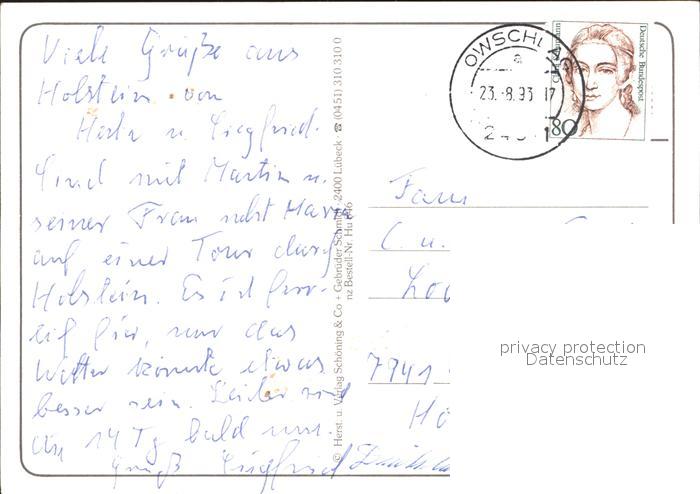 Viele Grüße aus
Holstein von
Herta u. Siegfried.
Sind mit Martin u.
seiner Frau nebst
auf einer Tour durch
Holstein. Es ist
hier, nur das
Wetter könnte etwas
besser sein. Leider sind
die 14 Tg bald um.
Gruß Siegfried
© Herst. u. Verlag Schöning & Co + Gebrüder Schmidt · 2400 Lübeck · ☎ (0451) 310 310 0
nz Bestell-Nr. Hu
OWSCHLAG
a
23.-8.93 17
Deutsche Bundespost
80
Fam
C. u.
7941
Hö
privacy protection
Datenschutz